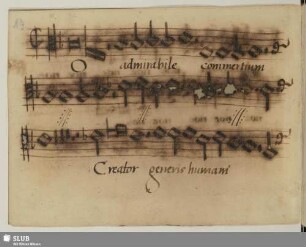 O admirabile commertium
Creator generis humani
SLUB